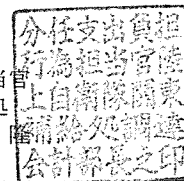 分任支出負担
行為担当官陸
上自衛隊関東
補給処調達
会計部長之印
官
処